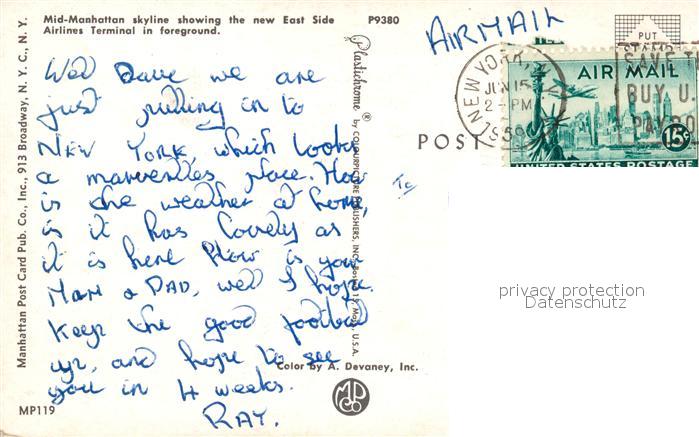 Mid-Manhattan skyline showing the new East Side
Airlines Terminal in foreground.
P9380
AIRMAIL
PUT
STAMP
Manhattan Post Card Pub. Co., Inc., 913 Broadway, N. Y. C., N. Y.
Plastichrome ® by COLOURPICTURE PUBLISHERS, INC., Boston 15, Mass., U.S.A.
Well Dave we are
just pulling in to
NEW YORK, which looks
a marvelles place. How
is the weather at home,
is it has lovely as
it is here How is your
Mam & DAD, well I hope.
Keep the good football
up, and hope to see
you in 4 weeks.
RAY.
To
POST
NEW YORK,
JUN 15
2 - PM
1959
SAVE T
BUY U.
PAYRO
AIR MAIL
15¢
UNITED STATES POSTAGE
privacy protection
Datenschutz
Color by A. Devaney, Inc.
MP
CO
MP119